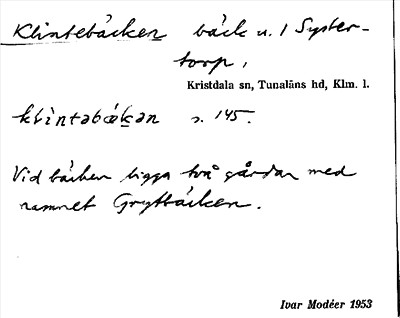 Klintebäcken bäck u. 1 Syster-
torp,
Kristdala sn, Tunaläns hd, Klm. l.
klìntəbækən s. 145.
Vid bäcken ligga två gårdar med
namnet Grytbäcken.
Ivar Modéer 1953